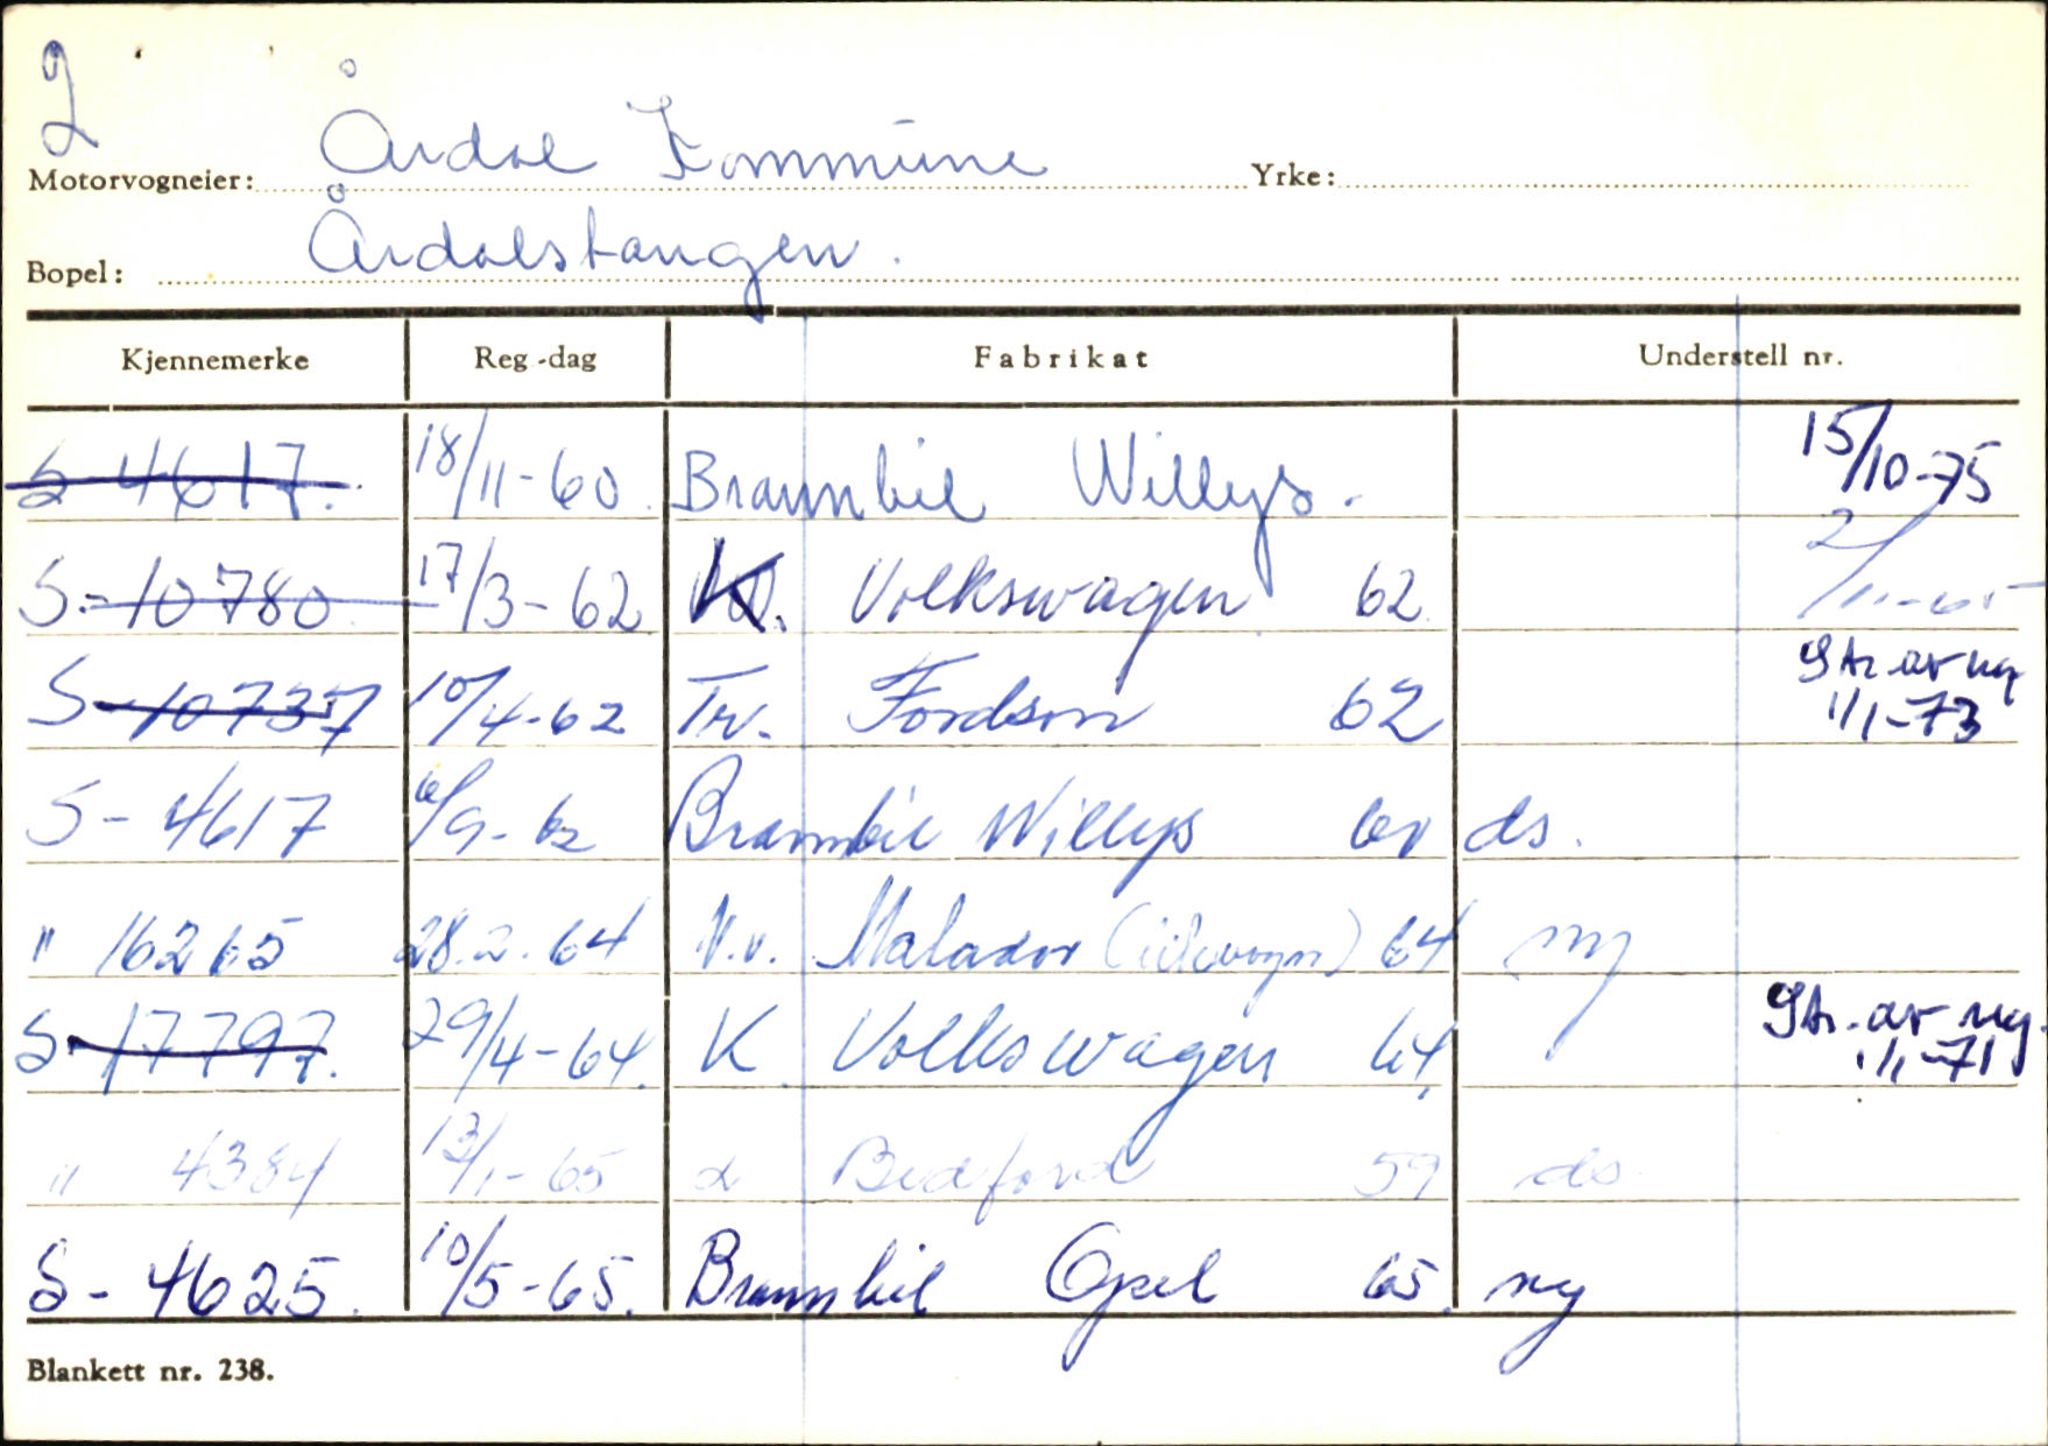 2
Motorvogneier: Årdal Kommune Yrke:
Bopel: Årdalstangen.
Kjennemerke Reg-dag Fabrikat Understell nr.
S 4617. 18/11-60. Brannbil Willys. 15/10-75
S-10780 17/3-62 Volkswagen 62 2/11-65
S-10737 10/4-62 Tr. Fordson 62 Str. av reg 1/1-73
S-4617 6/9-62 Brannbil Willys 60 ds.
" 16265 28.2.64 V.v. Matador 64 ny
S-17797. 29/4-64. K Volkswagen 64. Str. av reg. 1/1-71
" 4384 13/1-65 d Bedford 59 ds
S-4625. 10/5-65. Brannbil Opel 65. ny
Blankett nr. 238.